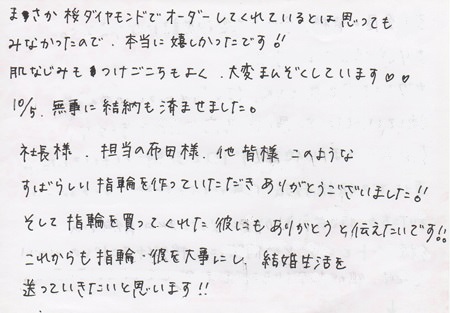 まさか 桜ダイヤモンドでオーダーしてくれているとは思っても
みなかったので、本当に嬉しかったです!!
肌なじみもつけごこちもよく、大変まんぞくしています♡♡
10/5、無事に結納も済ませました。
社長様、担当の布田様、他皆様 このような
すばらしい指輪を作っていただき ありがとうございました!!
そして 指輪を買ってくれた 彼にもありがとうと伝えたいです!!
これからも指輪・彼を大事にし、結婚生活を
送っていきたいと思います!!